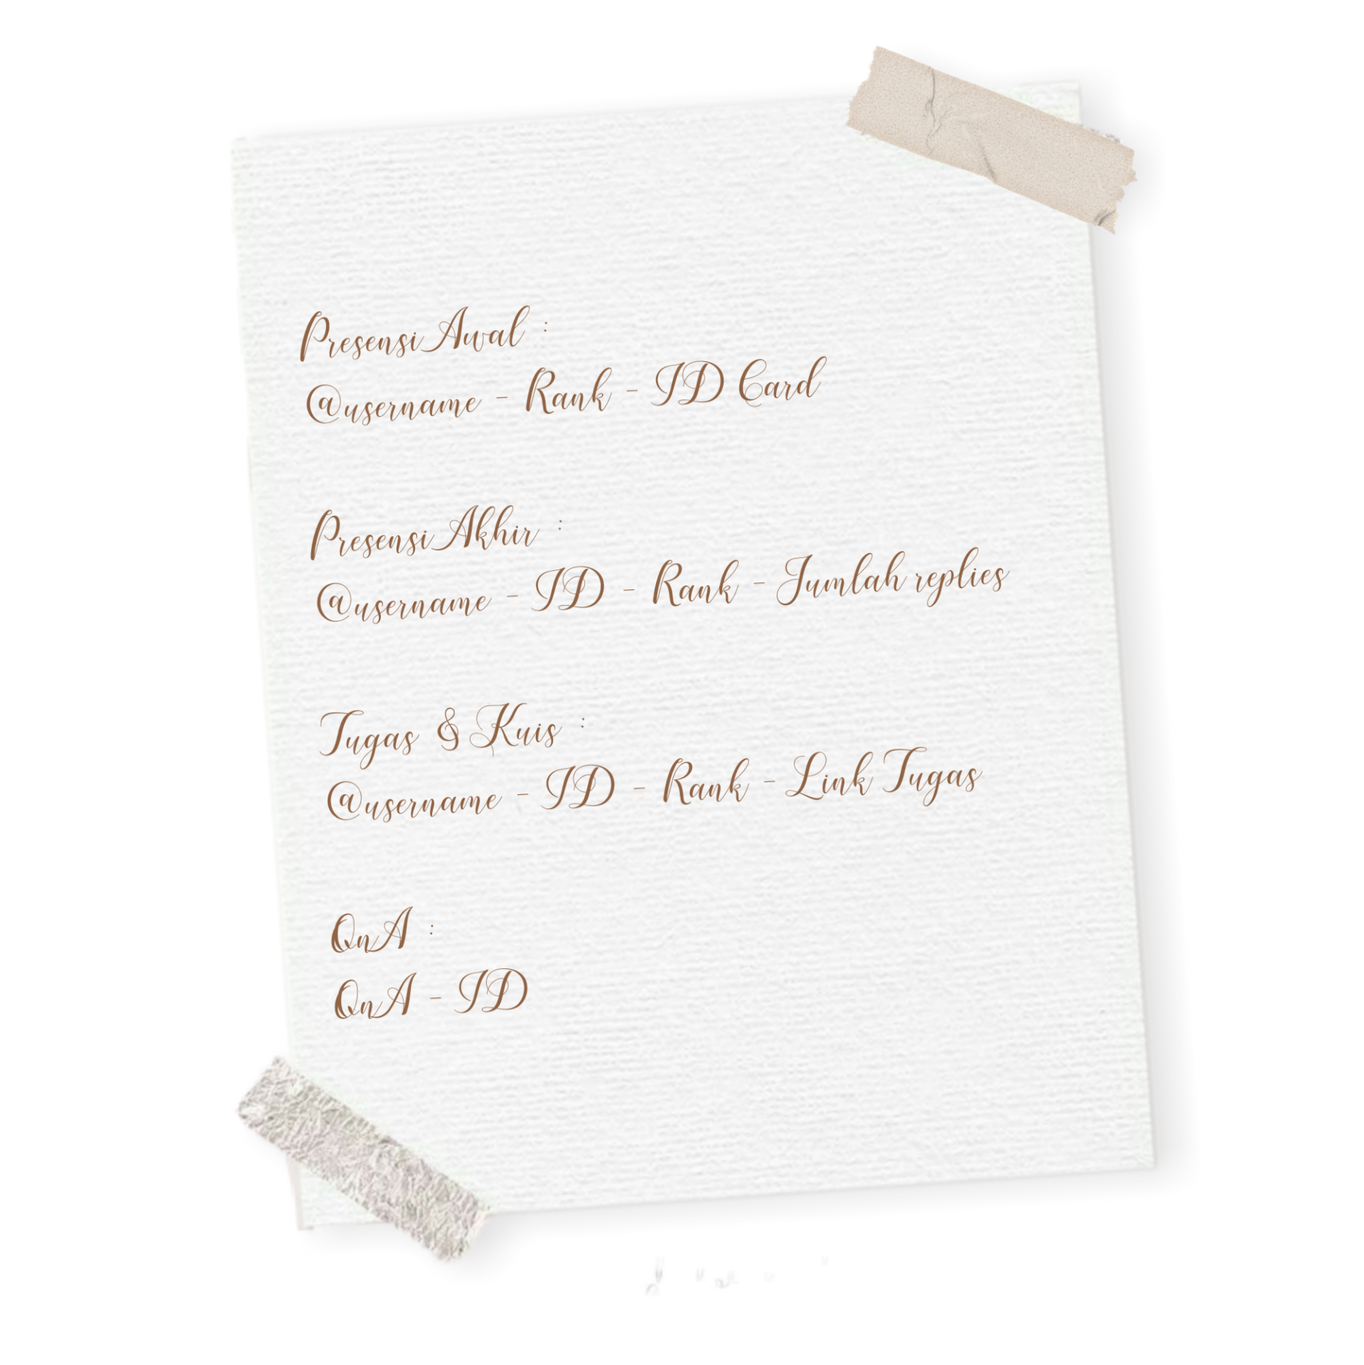 Presensi Awal :
@username - Rank - ID Card
Presensi Akhir :
@username - ID - Rank - Jumlah replies
Tugas & Kuis :
@username - ID - Rank - Link Tugas
QnA :
QnA - ID